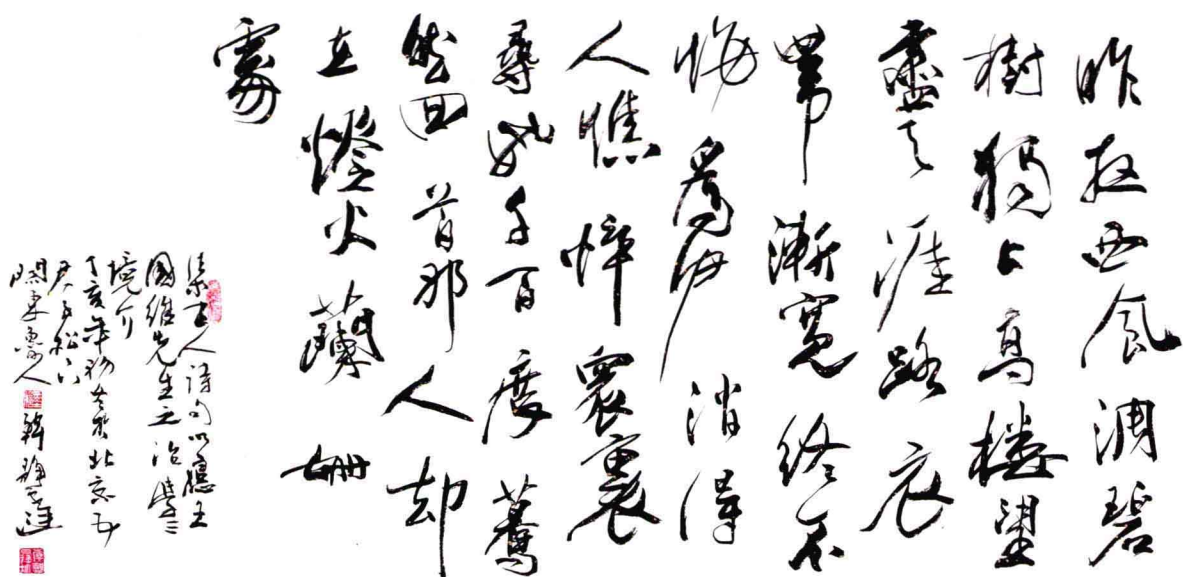 昨夜西風凋碧
樹獨上高樓望
盡天涯路衣
帶漸寬終不
悔為伊消得
人憔悴衆裏
尋他千百度驀
然回首那人却
在燈火蘭姍
處
集古人詩句以應王
國維先生之治學三
境介
丁亥年初冬於北京
君子松下
人 韓